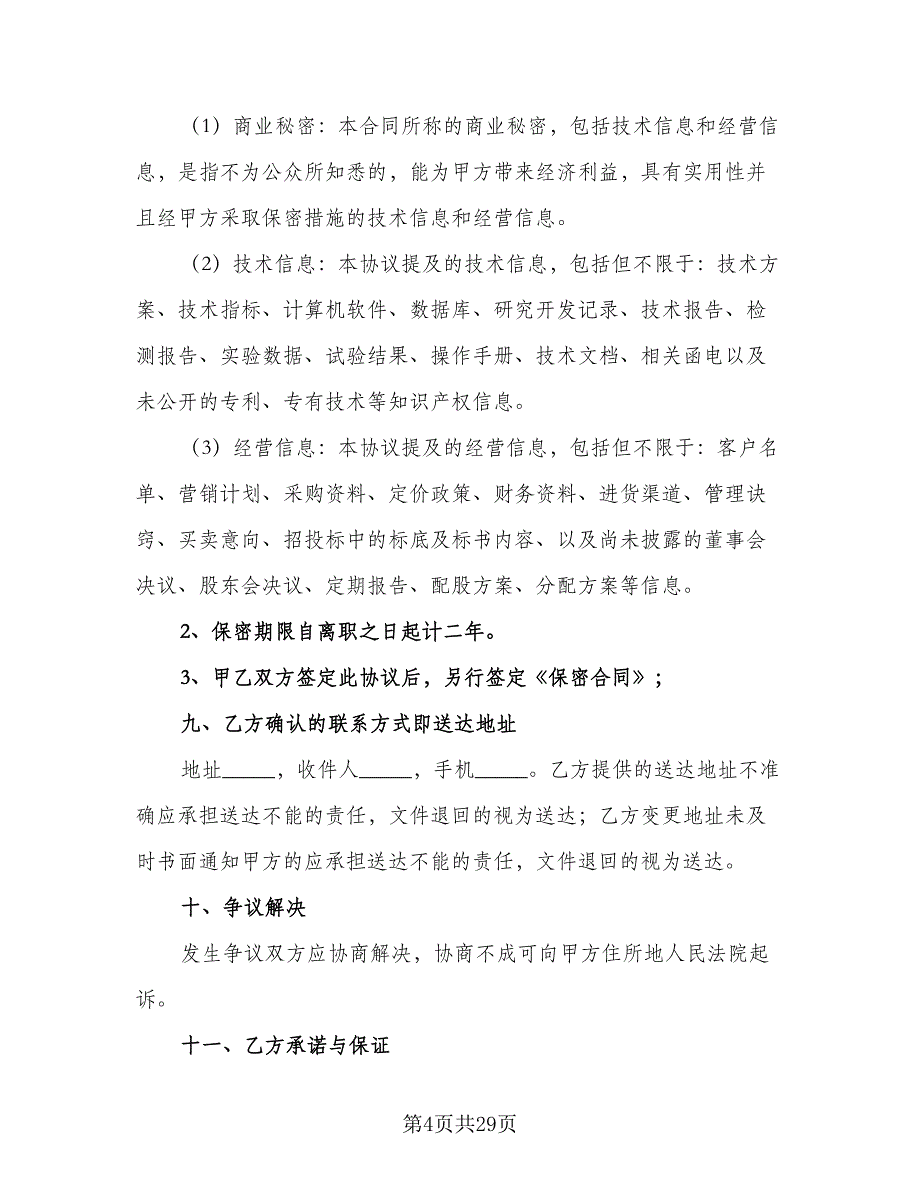 （1）商业秘密：本合同所称的商业秘密，包括技术信息和经营信
息，是指不为公众所知悉的，能为甲方带来经济利益，具有实用性并
且经甲方采取保密措施的技术信息和经营信息。
（2）技术信息：本协议提及的技术信息，包括但不限于：技术方
案、技术指标、计算机软件、数据库、研究开发记录、技术报告、检
测报告、实验数据、试验结果、操作手册、技术文档、相关函电以及
未公开的专利、专有技术等知识产权信息。
（3）经营信息：本协议提及的经营信息，包括但不限于：客户名
单、营销计划、采购资料、定价政策、财务资料、进货渠道、管理诀
窍、买卖意向、招投标中的标底及标书内容、以及尚未披露的董事会
决议、股东会决议、定期报告、配股方案、分配方案等信息。
2、保密期限自离职之日起计二年。
3、甲乙双方签定此协议后，另行签定《保密合同》；
九、乙方确认的联系方式即送达地址
地址_____，收件人_____，手机_____。乙方提供的送达地址不准
确应承担送达不能的责任，文件退回的视为送达；乙方变更地址未及
时书面通知甲方的应承担送达不能的责任，文件退回的视为送达。
十、争议解决
发生争议双方应协商解决，协商不成可向甲方住所地人民法院起
诉。
十一、乙方承诺与保证
第4页共29页